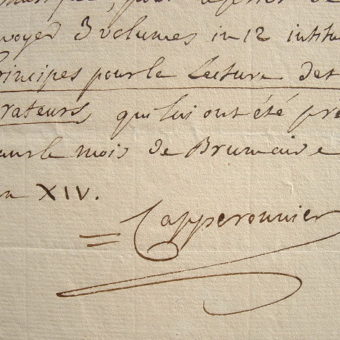 nvoyer 3 volumes in 12 intitu
Principes pour la Lecture des
orateurs, qui lui ont été pre
dans le mois de Brumaire
an XIV.
Capperonnier